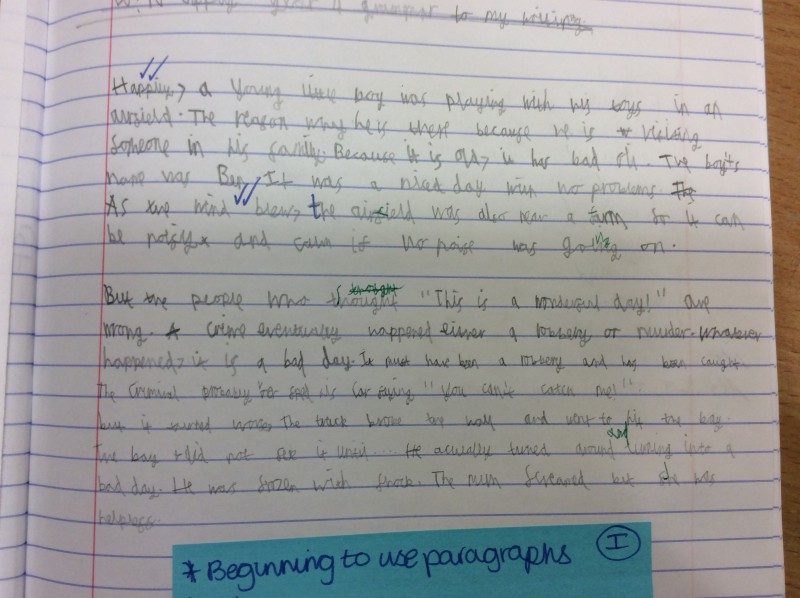 grammar to my writing
Happily, a young little boy was playing with his toys in an
airfield. The reason why he is there because he is visiting
someone in his family. Because it is old, it has bad oil. The boy's
name was Ben. It was a nice day with no problems. The
As the wind blew, the airfield was also near a farm so it can
be noisy and calm if no noise was going on.
But the people who thought thought "This is a wonderful day!" are
wrong. A crime eventually happened either a robbery or murder. Whatever
happened, it is a bad day. It must have been a robbery and has been caught.
The criminal probably his car saying "You can't catch me!".
but it started The track broke the wall and went to hit the boy.
The boy did not see it until... He actually turned around and into a
bad day. He was frozen with shock. The mum screamed but she was
helpless.
* Beginning to use paragraphs I